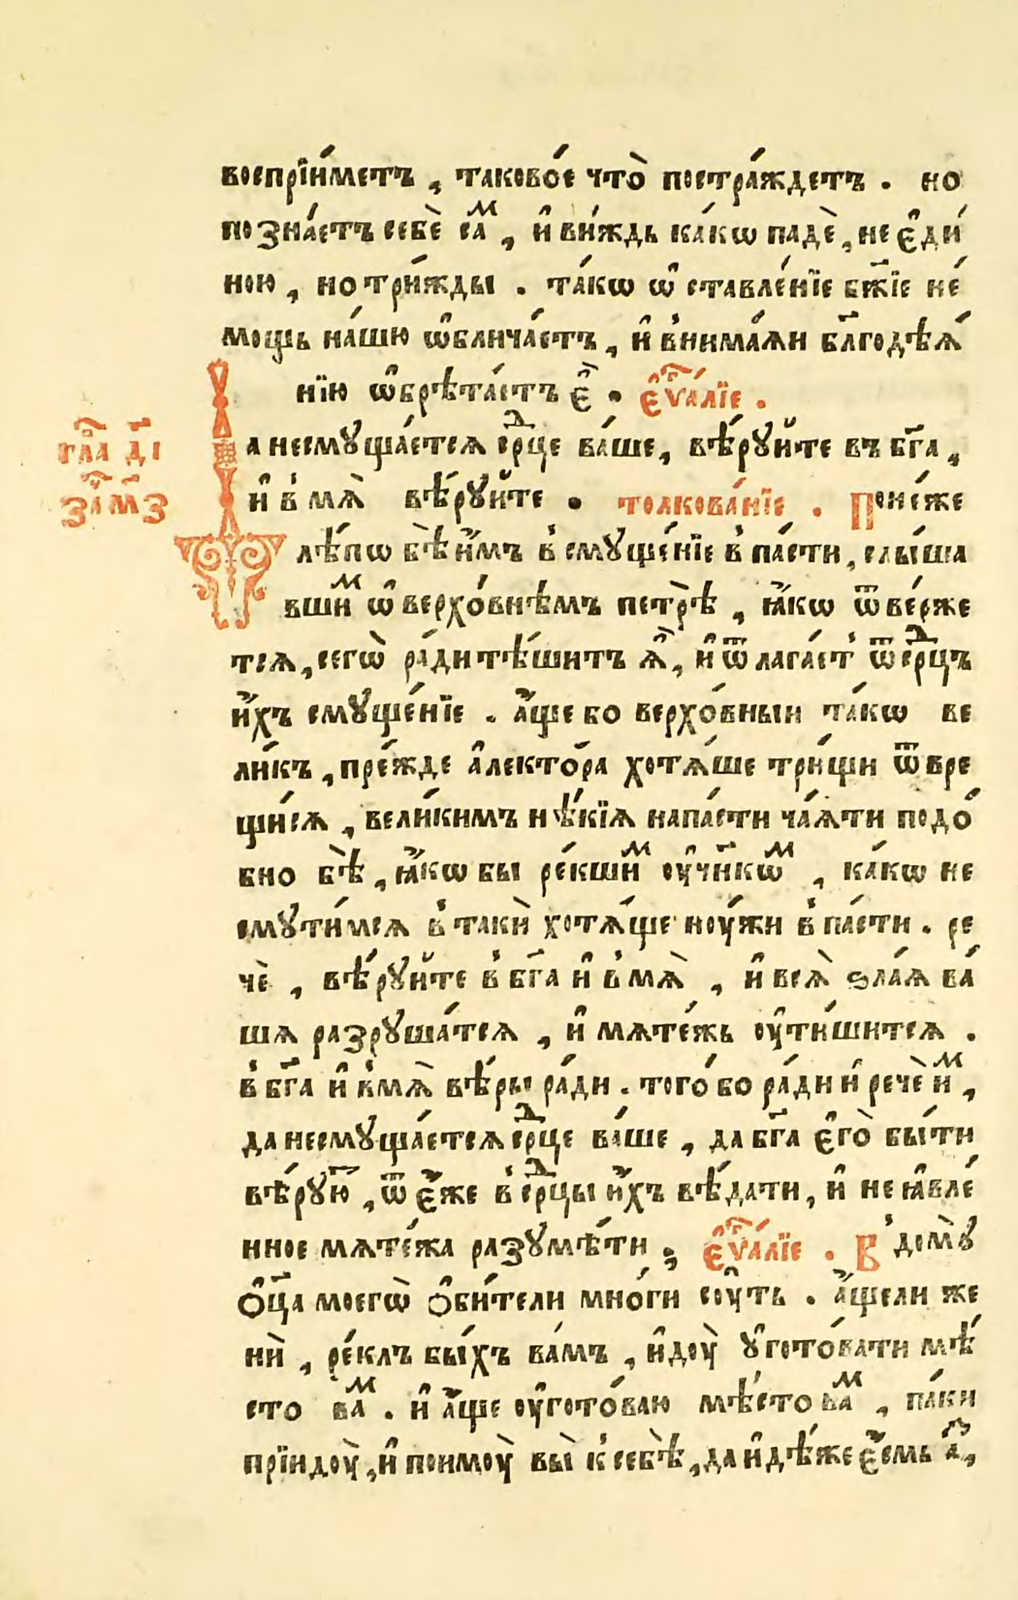 воспрїи́метъ , таково́е что̀ постра́ждетъ . но
позна́етъ себѐ саⷨ , и҆ ви́ждь ка́кѡ падѐ , не є҆ди́
ною , но три́жды . та́кѡ ѡ҆ставле́нїе бж҃їе не́
мощь на́шю ѡ҆блича́етъ , и҆ внима́ѧи бл҃годѣѧ́
нїю ѡ҆брѣта́етъ є҆̀ . є҆ѵⷢ҇а́лїе .
гла҃ д҃і
за҃ м҃з
Да несмꙋща́етсѧ срⷣце ва́ше , вѣ́рꙋйте въ бг҃а ,
и҆ в̾ мѧ̀ вѣ́рꙋйте . толкова́нїе . Поне́же
лѣ́пѡ бѣ̀ и҆̀мъ в̾ смꙋще́нїе впа́сти , слы́ша
вшиⷨ ѡ҆ верхо́внѣмъ петрѣ̀ , ꙗ҆́кѡ ѿве́рже
тсѧ , сегѡ̀ ра́ди тѣ́шитъ ѧ҆̀ , и҆ ѿлага́ет̾ ѿ срⷣцъ
и҆́хъ смꙋще́нїе . а҆́ще бо верхо́вныи та́кѡ ве
ли́къ , пре́жде а҆лекто́ра хотѧ́ше три́щи ѿвре
щи́сѧ , вели́кимъ нѣ́кїѧ напа́сти ча́ѧти подо́
бно бѣ̀ , ꙗ҆́кѡ бы ре́кшиⷨ оу҆ч҃нкѡⷨ , ка́кѡ не
смꙋти́мсѧ в̾ таки̇̀ хотѧ́ще ноу́жи впа́сти . ре
чѐ , вѣ́рꙋйте в̾ бг҃а и҆ в̾ мѧ̀ , и҆ всѧ̀ ѕла́ѧ ва́
шѧ разрꙋша́тсѧ , и҆ мѧте́жь оу҆ти́шитсѧ .
в̾ бг҃а и҆ в̾мѧ̀ вѣ́ры ра́ди . того́ бо ра́ди и҆ речѐ иⷨ ,
да несмꙋща́етсѧ срⷣце ва́ше , да бг҃а є҆го̀ бы́ти
вѣ́рꙋю҆ , ѿ є҆́же в̾ срⷣцы и҆́хъ вѣ́дати , и҆ не ꙗ҆вле́
нное мѧте́жа разꙋмѣ́ти ; є҆ѵⷢ҇а́лїе . В̾ домꙋ̀
ѻ҆ц҃а моегѡ̀ ѻ҆би́тели мно́ги соу҆́ть . а҆́щели же
нѝ , ре́клъ бы́хъ ва́мъ , и҆доу̀ ᲂу҆гото́вати мѣ́
сто ваⷨ . и҆ а҆́ще оу҆гото́ваю мѣ́сто ваⷨ , па́ки
прїидоу̀ , и҆ поимоу̀ вы̀ к̾ себѣ̀ , да и҆дѣ́же є҆́смь а҆́ⷥ ,